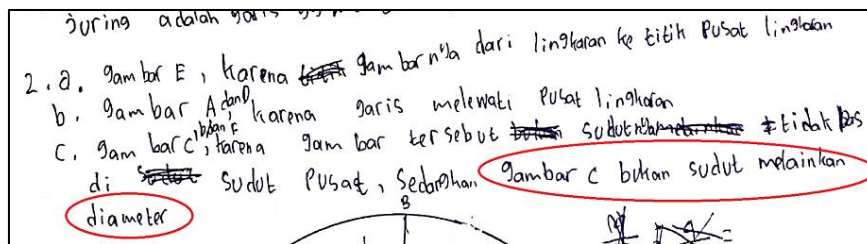 juring adalah garis
2. a. gambar E, karena gambarnya dari lingkaran ke titik pusat lingkaran
b. gambar A dan D, karena garis melewati pusat lingkaran
c. gambar C, b dan F, karena gambar tersebut sudutnya tidak pas
di sudut pusat, sedangkan gambar c bukan sudut melainkan
diameter
B